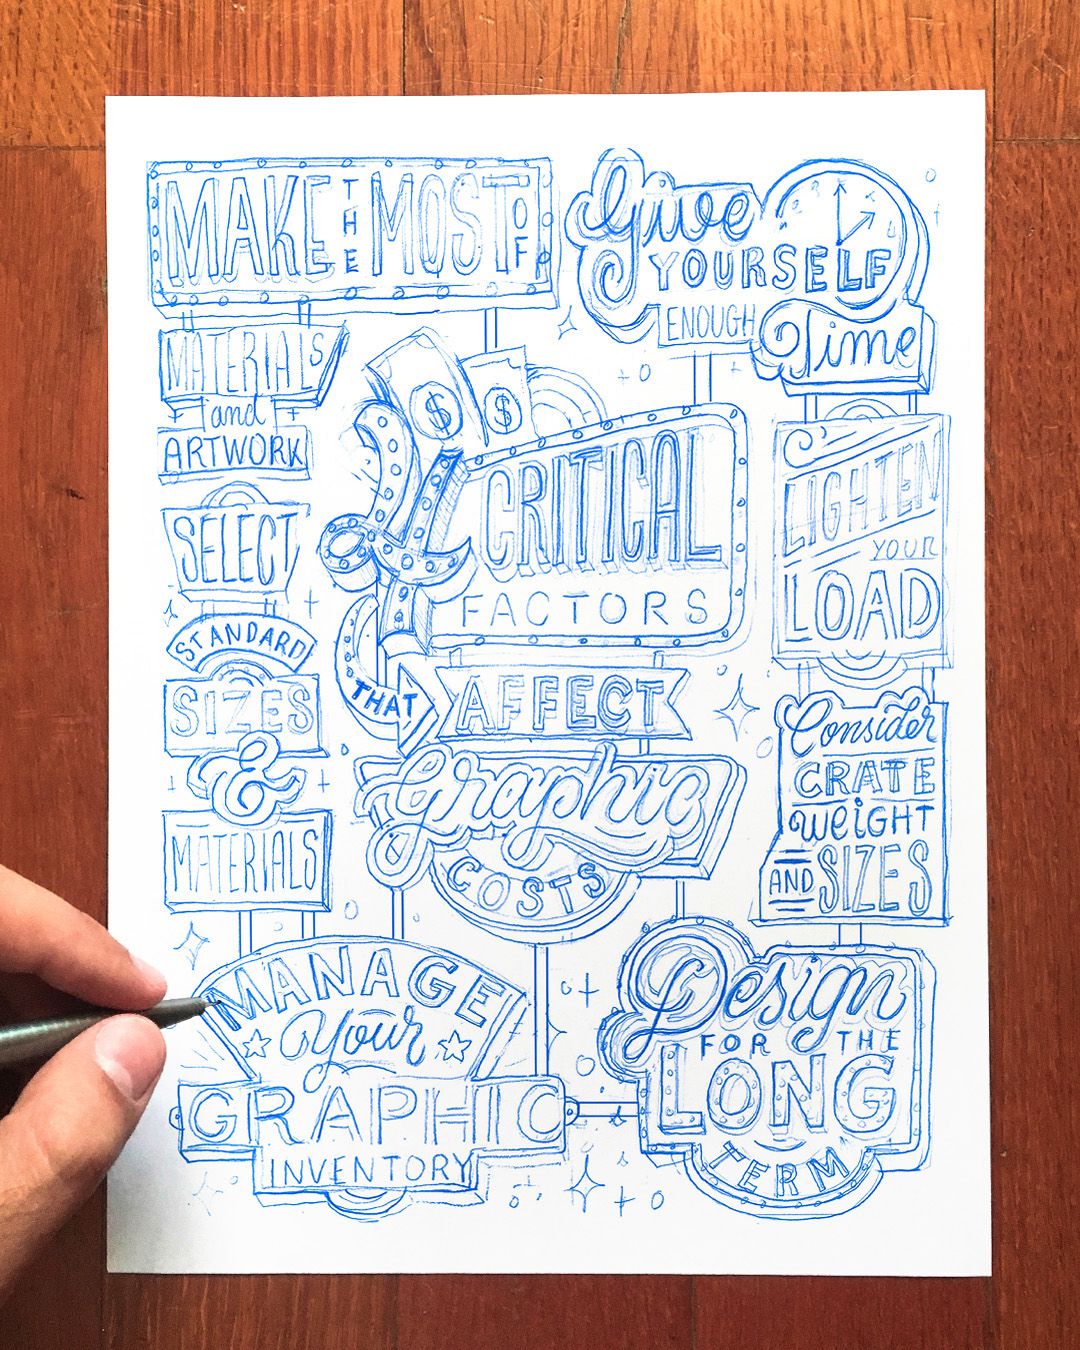 MAKE THE MOST OF
MATERIALS
and
ARTWORK
SELECT
STANDARD
SIZES
&
MATERIALS
MANAGE
your
GRAPHIC
INVENTORY
$ $
4
CRITICAL
FACTORS
THAT AFFECT
Graphic
COSTS
Give
YOURSELF
ENOUGH Time
LIGHTEN
YOUR
LOAD
Consider
CRATE
WEIGHT
AND SIZES
Design
FOR THE
LONG
TERM